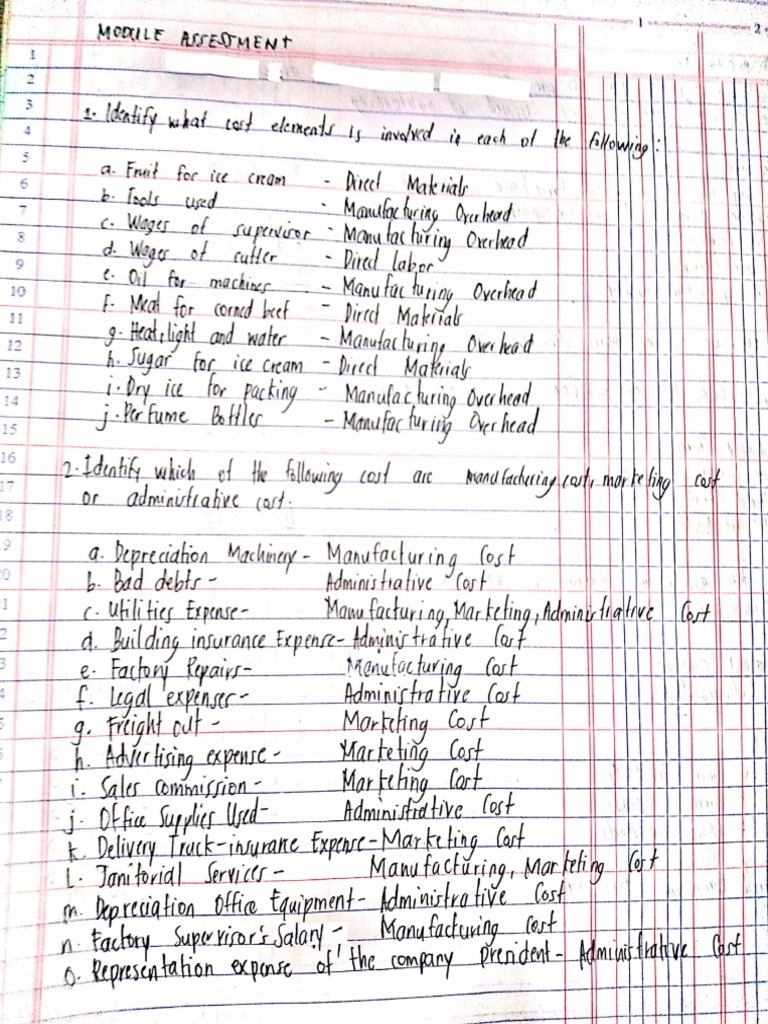 1 2
MODULE ASSESTMENT
1. Identify what cost elements is involved in each of the following:
a. Fruit for ice cream - Direct Materials
b. Tools used - Manufacturing Overhead
c. Wages of supervisor - Manufacturing Overhead
d. Wages of cutter - Direct labor
e. Oil for machines - Manufacturing Overhead
f. Meat for corned beef - Direct Materials
g. Heat, light and water - Manufacturing Overhead
h. Sugar for ice cream - Direct Materials
i. Dry ice for packing - Manufacturing Overhead
j. Perfume Bottles - Manufacturing Overhead
2. Identify which of the following cost are manufacturing cost, marketing cost
or administrative cost.
a. Depreciation Machinery - Manufacturing Cost
b. Bad debts - Administrative Cost
c. Utilities Expense - Manufacturing, Marketing, Administrative Cost
d. Building insurance Expense - Administrative Cost
e. Factory Repairs - Manufacturing Cost
f. Legal expenses - Administrative Cost
g. Freight out - Marketing Cost
h. Advertising expense - Marketing Cost
i. Sales commission - Marketing Cost
j. Office Supplies Used - Administrative Cost
k. Delivery Truck-insurance Expense - Marketing Cost
l. Janitorial Services - Manufacturing, Marketing Cost
m. Depreciation Office Equipment - Administrative Cost
n. Factory Supervisor's Salary - Manufacturing Cost
o. Representation expense of the company president - Administrative Cost